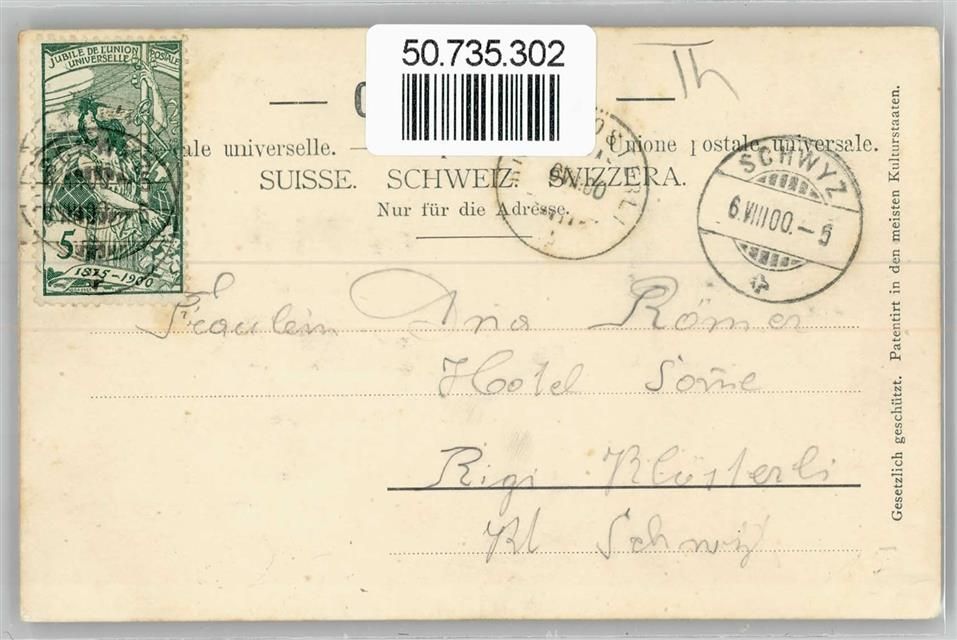 50.735.302
JUBILÉ DE L'UNION POSTALE
UNIVERSELLE
5
1875-1900
Th
ale universelle. — Unione postale universale.
SUISSE. SCHWEIZ. SVIZZERA.
Nur für die Adresse.
SCHWYZ
6.VIII 00.-5
Fräulein Ana Römer
Hotel Sone
Rigi Klösterli
Kt Schwyz
Gesetzlich geschützt. Patentirt in den meisten Kulturstaaten.